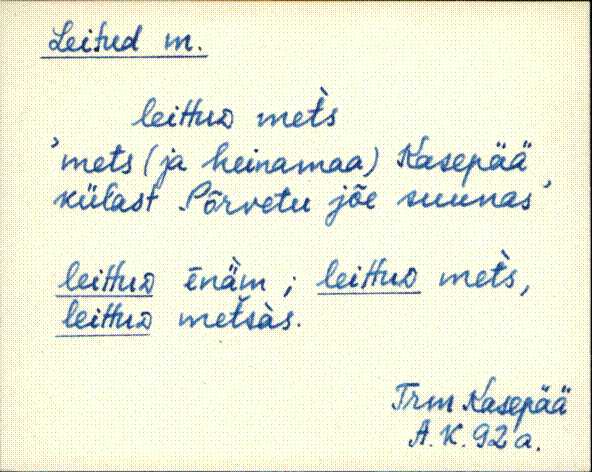 Leitud m.
leittuᴅ met̀s
'mets (ja heinamaa) Kasepää
külast Põrvetu jõe suunas'
leittuᴅ ēnäm; leittuᴅ met̀s,
leittuᴅ metsàs.
Trm Kasepää
A.K. 92a.